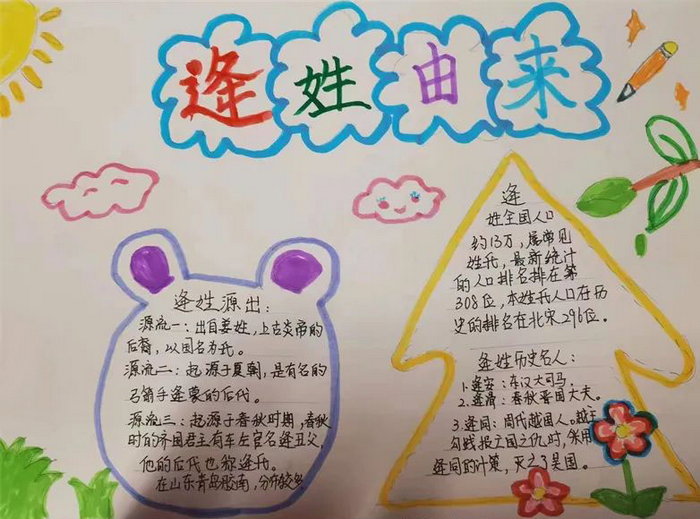 逄姓由来
逄姓源出：
源流一：出自姜姓，上古炎帝的
后裔，以国名为氏。
源流二：起源于夏朝，是有名的
弓箭手逄蒙的后代。
源流三：起源于春秋时期，春秋
时的齐国君主有车左官名逄丑父，
他的后代也称逄氏。
在山东青岛胶南，分布较多
逄
姓全国人口
约13万，属常见
姓氏，最新统计
的人口排名排在第
308位，本姓氏人口在历
史的排名在北宋296位。
逄姓历史名人：
1.逄安：东汉大司马。
2.逄滑：春秋晋国大夫。
3.逄同：周代越国人。越王
勾践报亡国之仇时，采用
逄同的计策，灭了吴国。